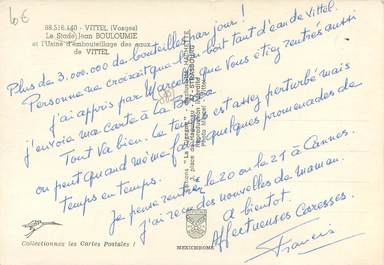 6€
88.516.140 - VITTEL (Vosges)
Le Stade Jean BOULOUMIE
et l'Usine d'embouteillage des eaux
de VITTEL
Plus de 3.000.000 de bouteilles par jour !
Personne ne croirait que l'on boit tant d'eau de Vittel.
j'ai appris par Marcel que vous étiez rentrés aussi
j'envoie ma carte à La
Tout va bien. le temps est assez perturbé mais
on peut quand même faire quelques promenades de
temps en temps.
Je pense rentrer le 20 ou le 21 à Cannes.
j'ai reçu des nouvelles de maman.
A bientôt.
Affectueuses Caresses.
Francis
Editions "La Cigogne"
STRASBOURG
Reproduction interdite
MEXICHROME
Collectionnez les Cartes Postales !